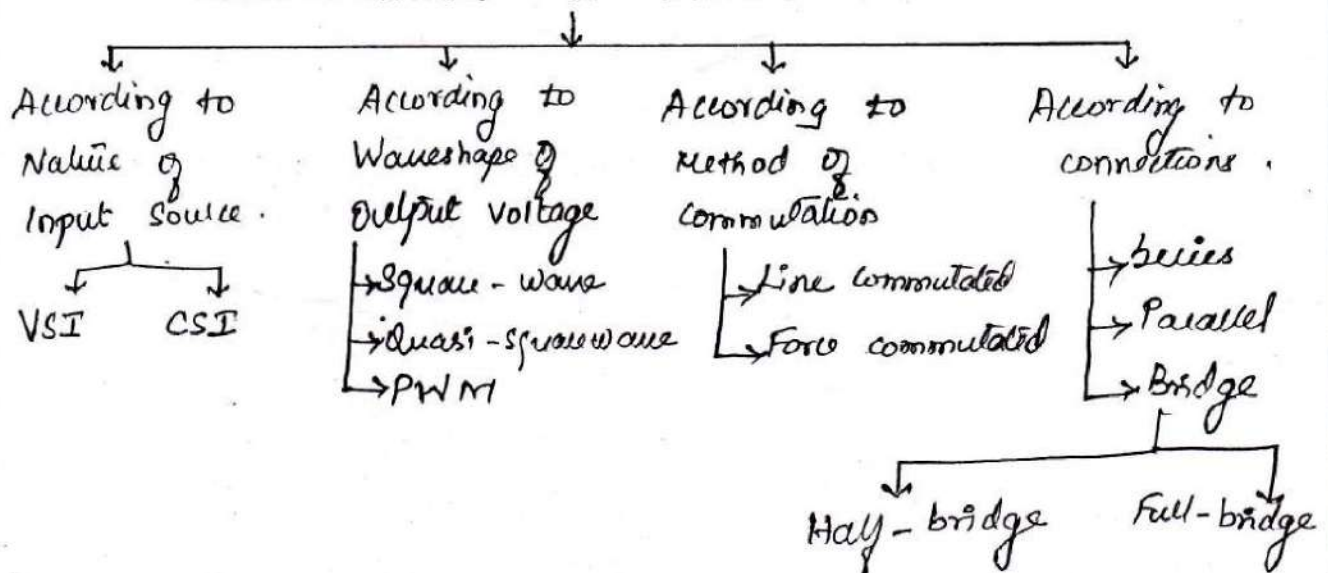 According to
Nature of
Input Source.
VSI CSI
According to
Waveshape of
Output Voltage
Square-wave
Quasi-squarewave
PWM
According to
Method of
commutation
Line commutated
Force commutated
According to
connections.
Series
Parallel
Bridge
Half-bridge Full-bridge